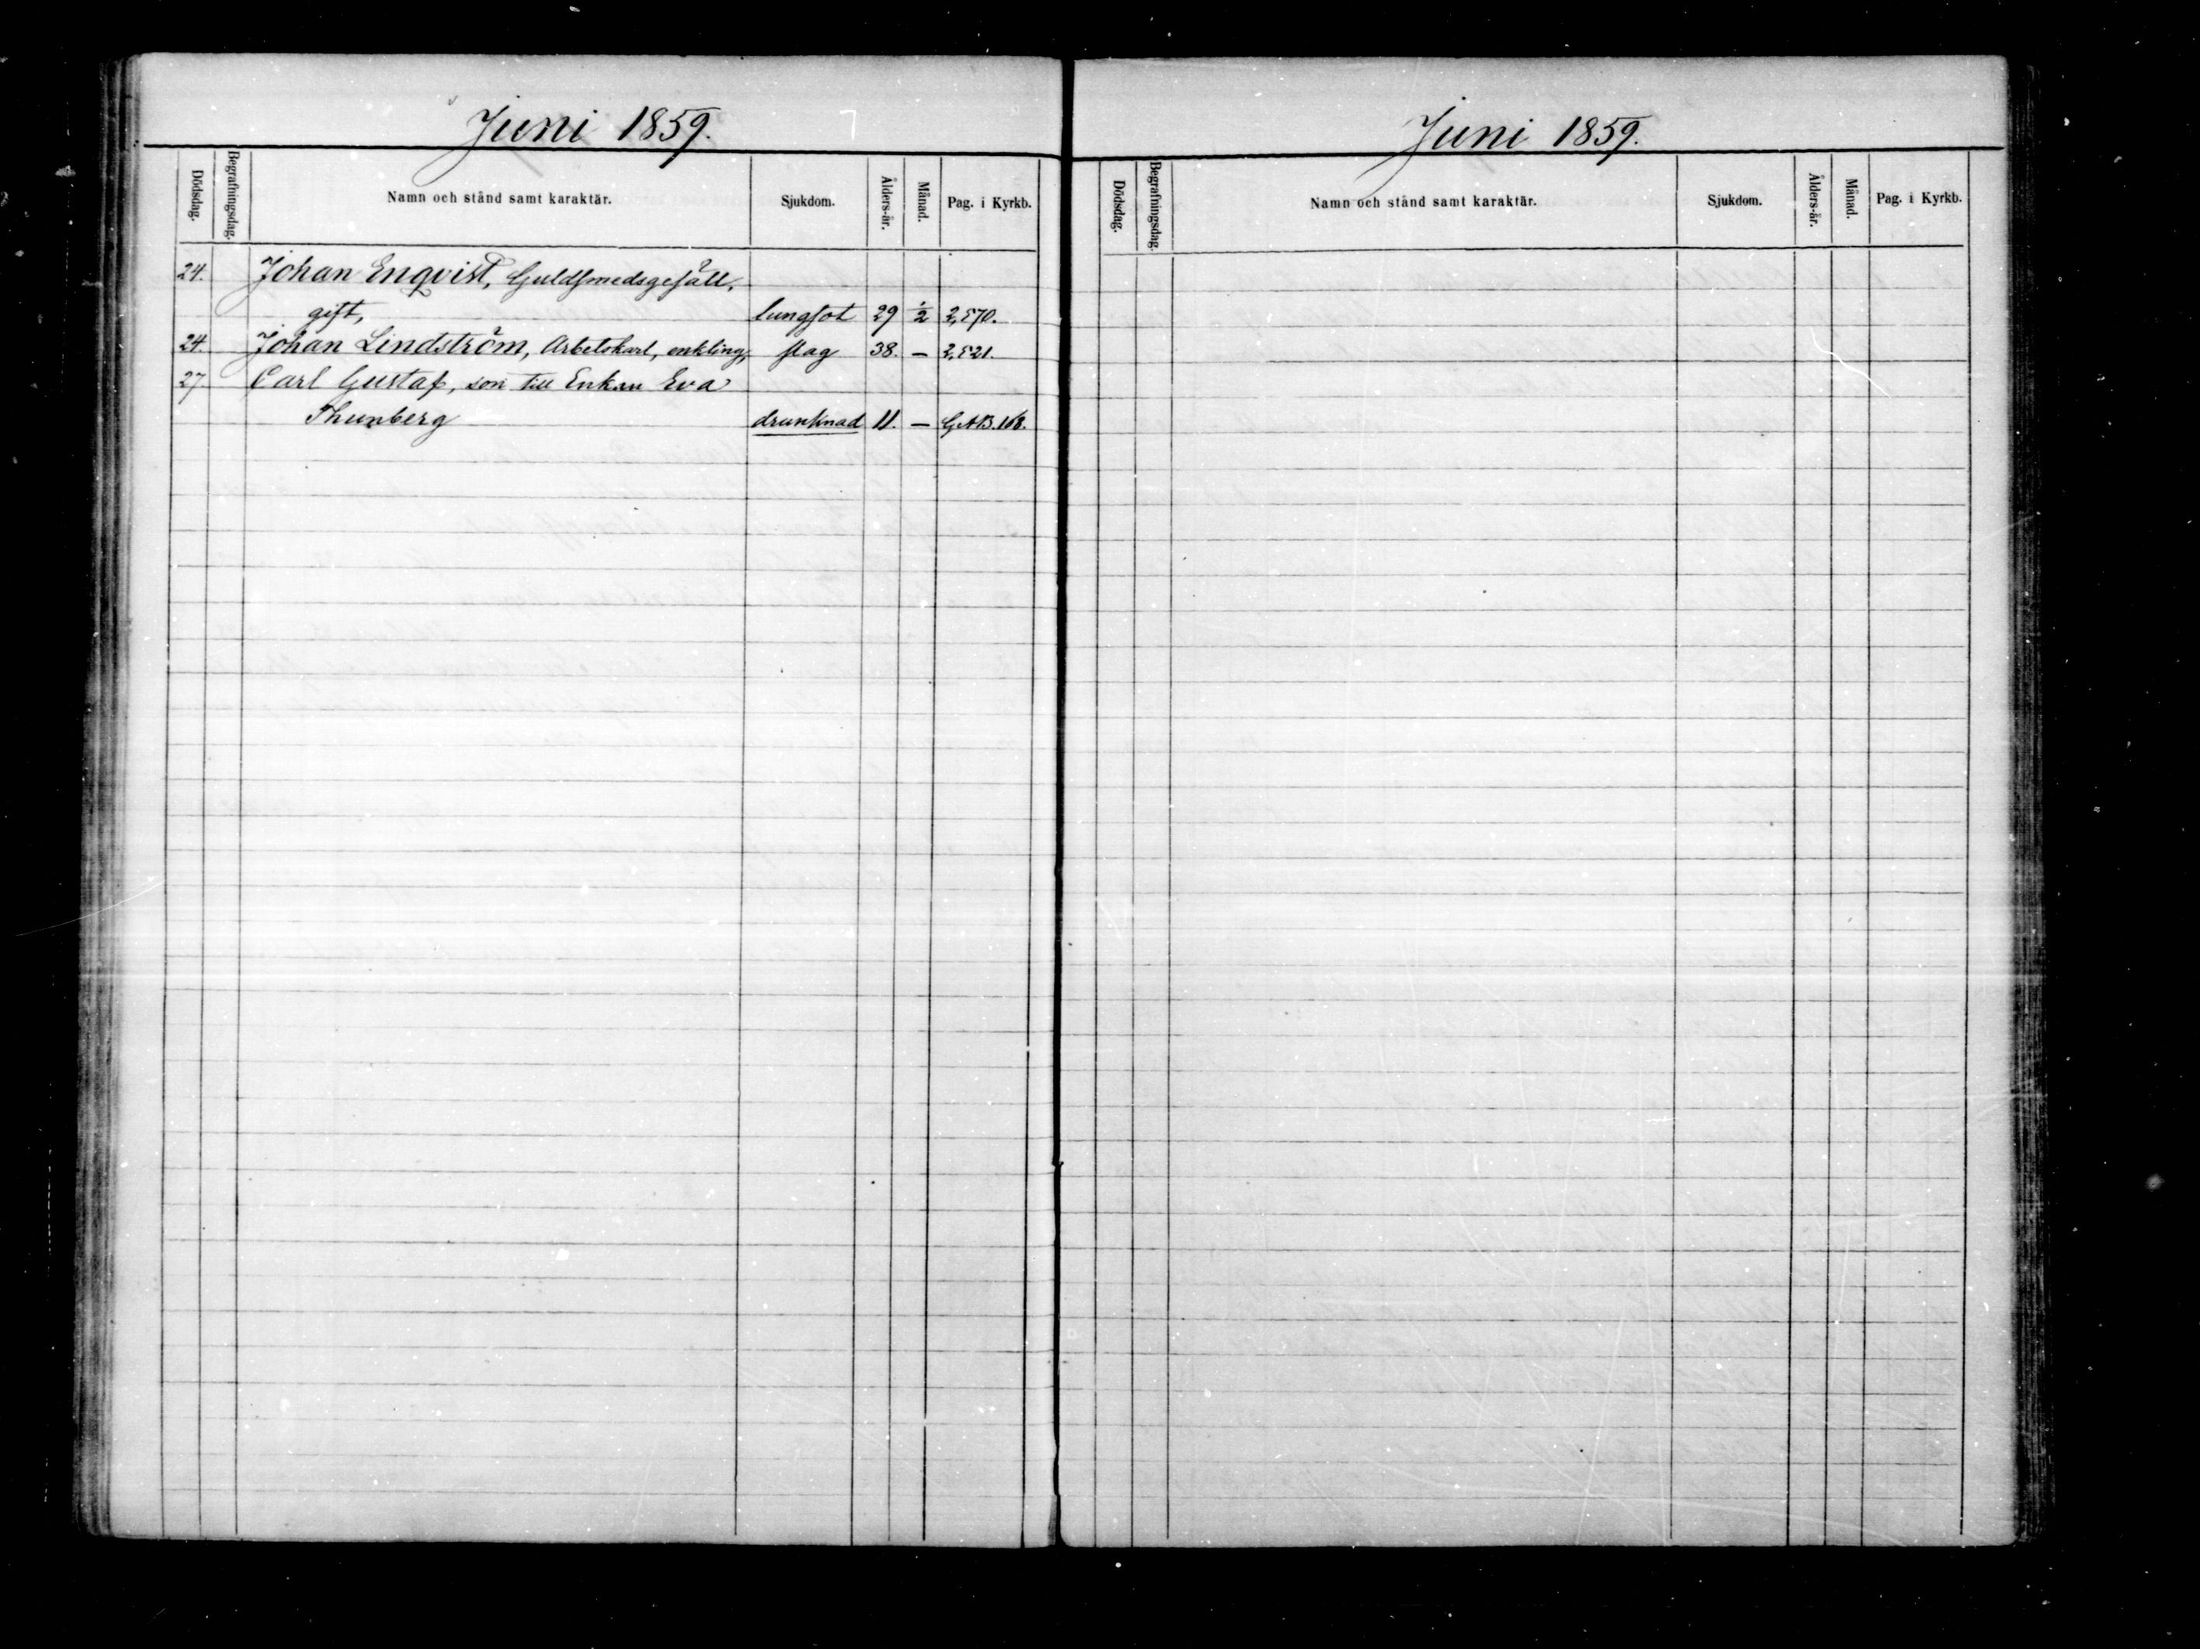 Juni 1859.
Dödsdag. Begrafningsdag. Namn och stånd samt karaktär. Sjukdom. Ålders-år. Månad. Pag. i Kyrkb.
24. Johan Enqvist, Guldsmedsgesäll,
gift, lungsot 29 1/2 2,570.
24. Johan Lindström, Arbetskarl, enkling, slag 38. — 2,521.
27 Carl Gustaf, son till Enkan Eva
Thunberg drunknad 11. — G.A.B. 168.
Juni 1859.
Dödsdag. Begrafningsdag. Namn och stånd samt karaktär. Sjukdom. Ålders-år. Månad. Pag. i Kyrkb.